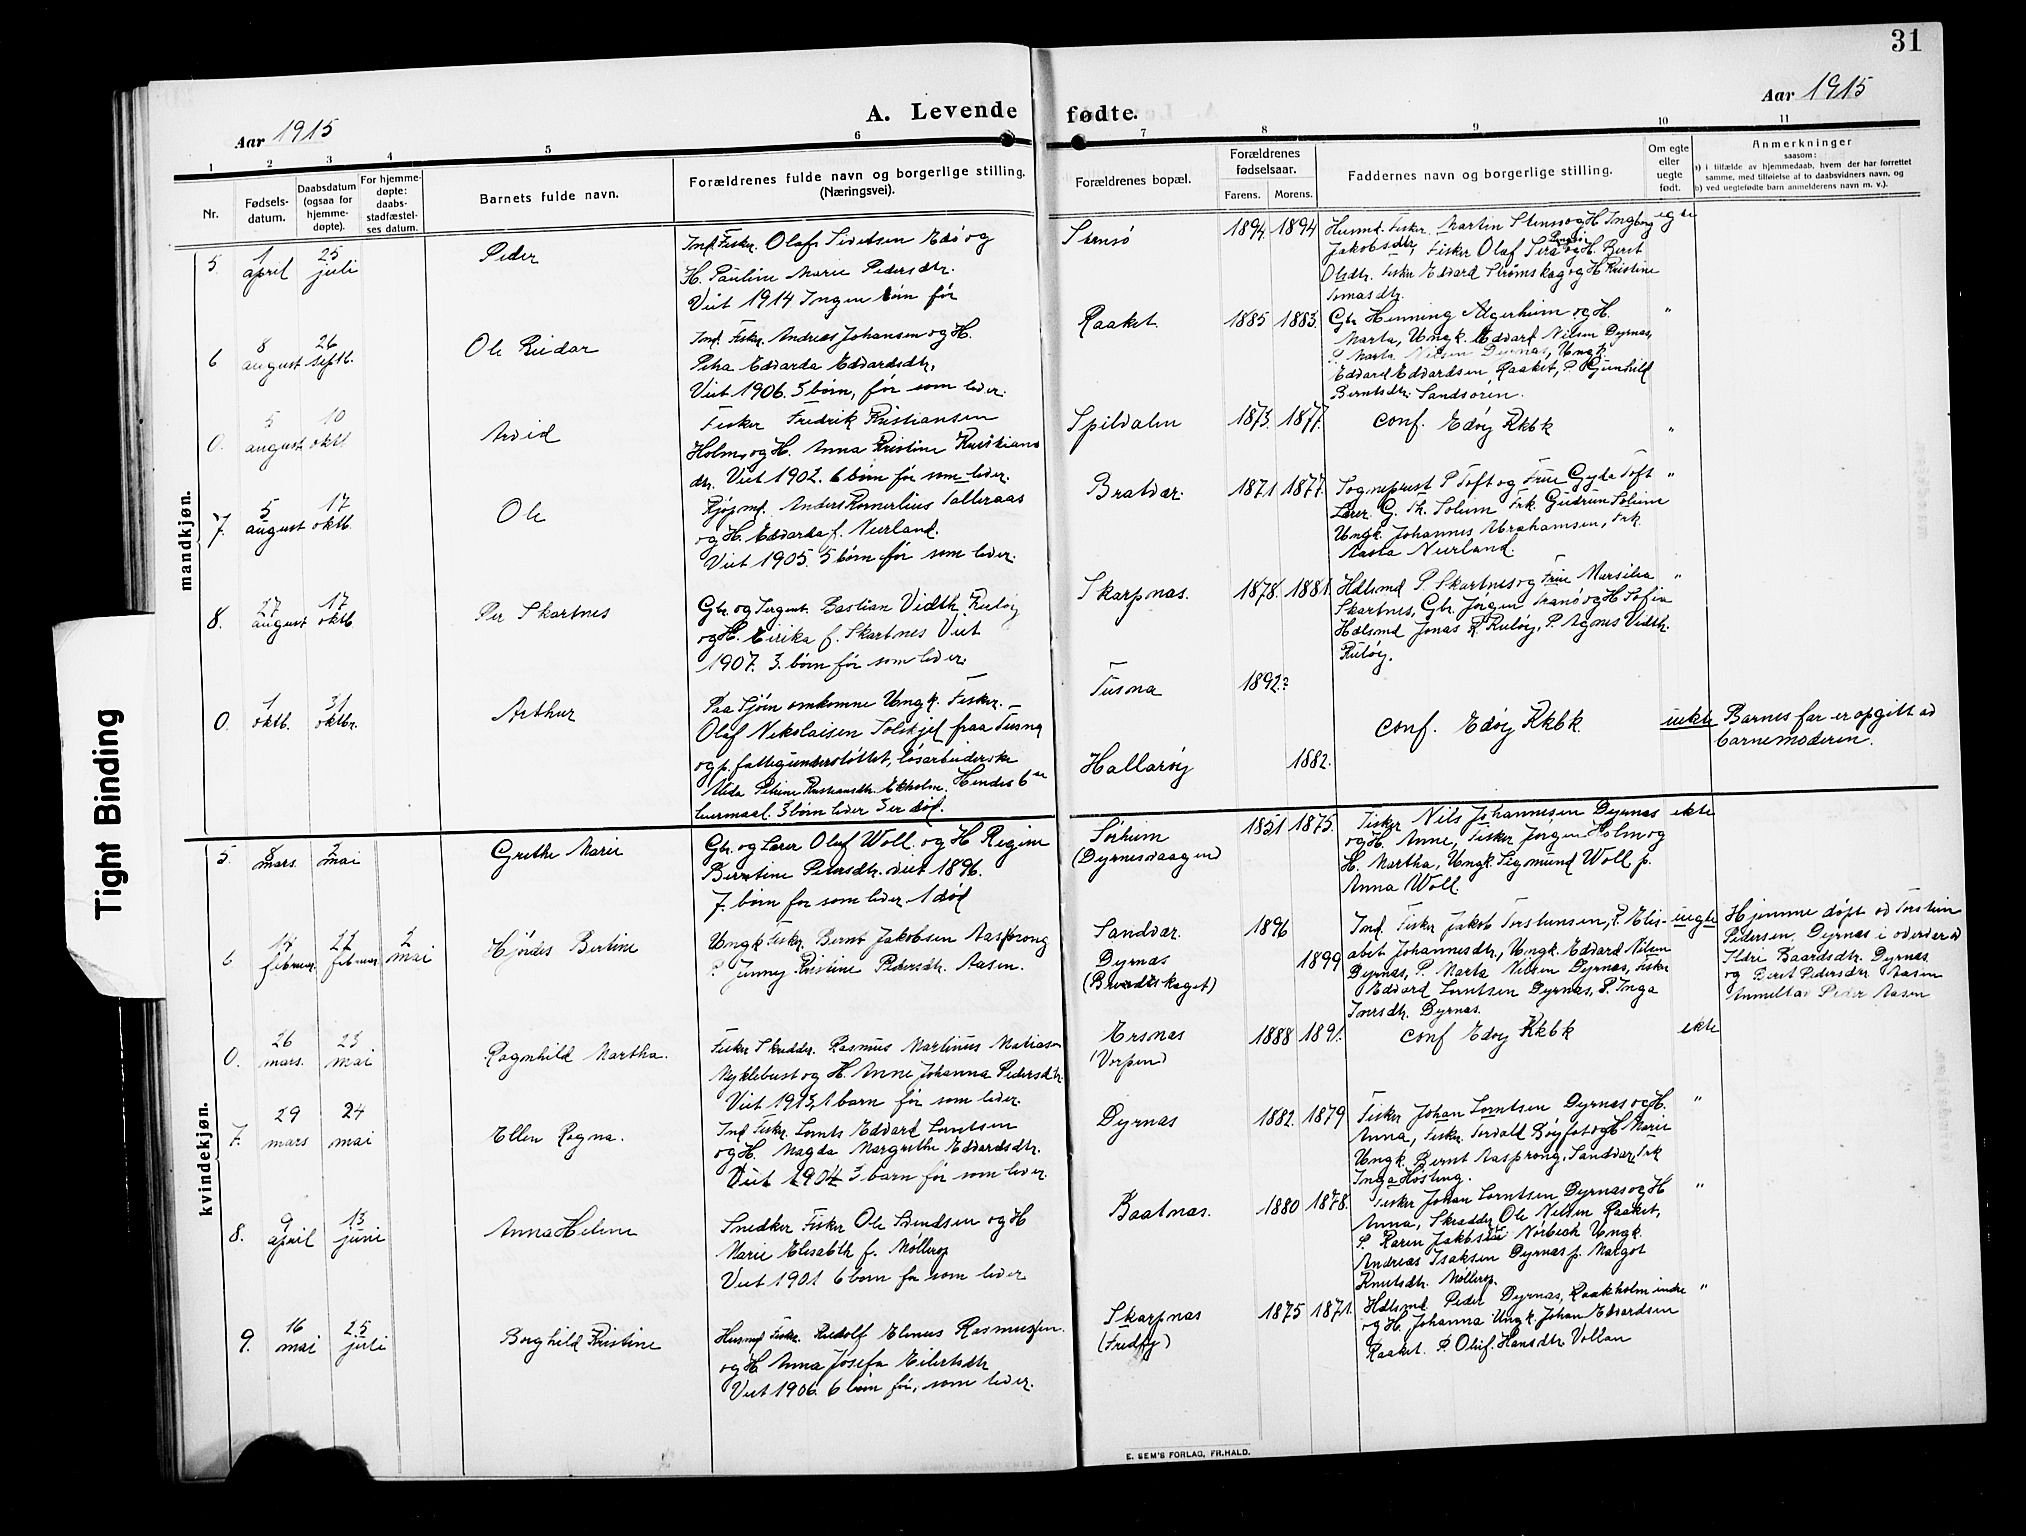 31
Aar 1915
A. Levende fødte.
Aar 1915
1 2 3 4 5 6 7 8 9 10 11
Nr.
Fødsels-
datum.
Daabsdatum
(ogsaa for
hjemme-
døpte).
For hjemme-
døpte:
daabs-
stadfæstel-
ses datum.
Barnets fulde navn.
Forældrenes fulde navn og borgerlige stilling.
(Næringsvei).
Forældrenes bopæl.
Forældrenes
fødselsaar.
Farens. Morens.
Faddernes navn og borgerlige stilling.
Om egte
eller
uegte
født.
Anmerkninger
saasom:
a) i tilfælde av hjemmedaab, hvem der har forrettet
samme, med tilføielse af to daabsvidners navn, og
b) ved uegtefødte barn anmelderens navn m. v.).
mandkjøn.
5 1 april 25 juli Peder
Ind. Fisker. Olaf Sivertsen Edø og
H. Pauline Marie Pedersdtr.
Viet 1914 Ingen børn før
Stensø 1894 1894
Husmd. Fisker. Martin Stensø og H Ingborg
Jakobsdtr, Fisker Olaf og H. Berit
Olsdtr. Fisker Edvard Strømskag og H Kristine
egte
6 8 august 26 septb. Ole Reidar
Ind. Fisker. Andreas Johansen og H.
Petra Edvarda Edvardsdtr,
Viet 1906. 5 børn, før som lever.
Raaket. 1885 1883.
Gbr Henning Algerheim og H.
Marta, Ungk. Edvard Nilsen Dyrnæs,
P. Marta Nilsen Dyrnæs, Ungk.
Edvard Edvardsen Raaket, P. Gunhild
Berntsdtr. Sandsøren.
"
0. 5 august 10 oktb Arvid
Fisker Fredrik Kristiansen
Holm og H. Anna Kristine Kristians
dtr. Viet 1902. 6 børn før som lever.
Spildalen 1873. 1877.
conf. Edøy Kkbk
"
7. 5 august 17 oktb. Ole
Kjøpmd. Anders Kornelius Talleraas
og H. Edvarda f. Neerland.
Viet 1905. 5 børn før som lever.
Bratvær. 1871 1877.
Sogneprest P Toft og Frue Gyda Toft
Lærer. G. Th. Solem Frk. Gudrun Solem
Ungk. Johannes Abrahamsen, Frk.
Aasta Neerland.
"
8. 27 august 17 oktb Per Skartnes
Gbr. og Sergent. Bastian Vidth. Kuløy
og H. Eirika f. Skartnes Viet
1907. 3. børn før som lever.
Skarpnæs. 1878. 1881.
Hdlsmd P. Skartnes og Frue Marselia
Skartnes, Gbr. Jørgen og H Sofia
Hdlsmd Jonas R. Kuløy, P. Agnes Vidth.
Kuløy.
"
0. 1 oktb. 31 oktbr. Arthur
Paa Sjøen omkomne Ungk. Fisker.
Olaf Nikolaisen Solskjel fraa Tusna
og p. fattigunderstøttet, løsarbeiderske
Petrine Kristiansdtr. Ekholm. Hendes 6te
leiermaal. 3 børn lever 3 er død.
Tusna 1892?
Hallarøy 1882.
conf. Edøy Kkbk.
uekte
Barnes far er opgitt av
barnemoderen.
kvindekjøn.
5. 8 mars. 2 mai Grethe Marie
Gbr. og Lærer Olaf Woll. og H Regine
Berntine Petersdtr. viet 1896.
7. børn før som lever 1 død
Sørheim
(Dyrnesvaagen) 1851 1875.
Fisker Nils Johannesen Dyrnæs
og H. Anne, Fisker Jørgen Holm og
H. Martha, Ungk. Sigmund Woll p.
Anna Woll.
ekte
6 februar. februar 2 mai Hjørdis Bertine
Ungk. Fisker. Bernt Jakobsen Aasprong
P. Jenney Kristine Pedersdtr. Aasen.
Sandvær. 1896
Dyrnæs 1899
Ind. Fisker Jakob Torstensen, P. Elis-
abet Johannesdtr, Ungk. Edvard Nilsen
Dyrnæs, P. Marta Nilsen Dyrnæs, Fisker
Edvard Lorntsen Dyrnæs, P. Inga
Iversdtr. Dyrnæs.
uegte
Hjemme døpt av Torstein
Pedersen, Dyrnæs i overvær av
Baardsdtr. Dyrnæs
og Beret Pedersdtr Aasen
Anmeldt av Peder Aasen
0. 26 mars. 23 mai Ragnhild Martha.
Fisker Skredder. Rasmus Martinus Matiasen
Myklebust og H. Anne Johanna Pedersdtr
Viet 1913, 1 barn før som lever.
Ersnæs
(Vorpen) 1888 1891.
conf Edøy Kkbk
ekte
7. 29 mars 24 mai Ellen Ragna.
Ind Fisker. Lornts Edvard Lorntsen
og H. Magda Margrethe Edvardsdtr.
Viet 1904 3 barn før som lever
Dyrnæs 1882. 1879
Fisker Johan Lorntsen Dyrnæs og H.
Anna, Fisker. Torvald Bøyfot og H Marie
Ungk. Bernt Aasprong, Sandvær, Frk
Inga Høsling.
"
8. 9 april 13 juni Anna Helene
Snedker Fisker Ole Svendsen og H
Marie Elisabth f. Møllerop
Viet 1901 6 børn før som lever
Baatnæs. 1880 1878.
Fisker Johan Lorntsen Dyrnæs og H
Anna, Skredder Ole Nilsen Raaket,
P. Karen Norbech Ungk.
Andreas Isaksen Dyrnæs p. Margot
Knutsdtr. Møllerop.
"
9. 16 mai 25 juli Borghild Kristine
Husmd Fisker. Rudolf Elenus Rasmussen
og H Anna Josefa Eilertsdtr
Viet 1906. 6 børn før, som lever.
Skarpnæs
(Fredøy) 1875 1871.
Hdlsmd. Peder Dyrnæs, Raakholm indre
og H. Johanna Ungk. Johan Edvardsen
Raaket. P. Oluf. Hansdtr. Vollan
"
E. SEM'S FORLAG, FR.HALD.
Tight Binding